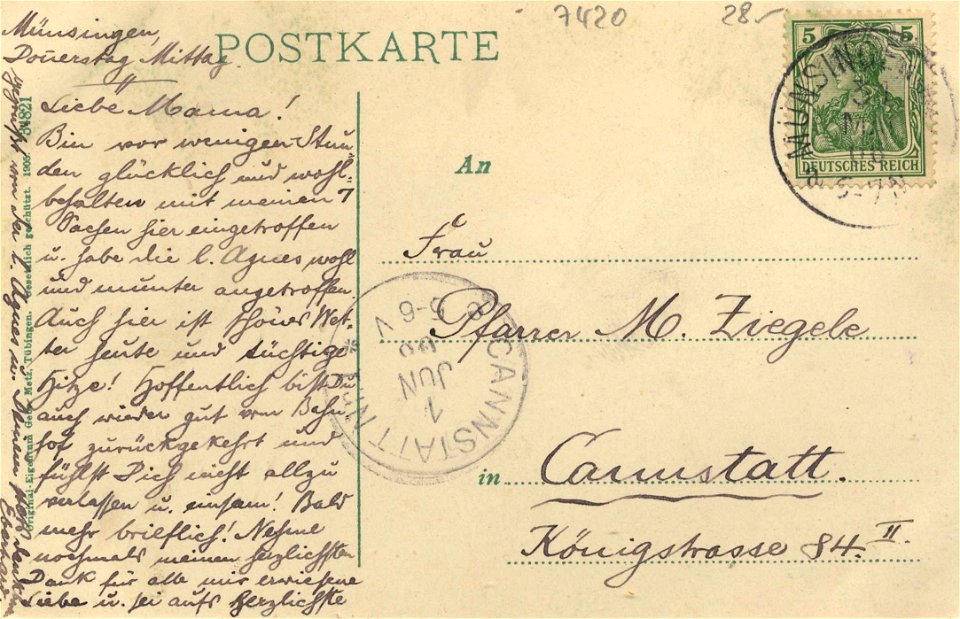 7420
28.-
POSTKARTE
5 5
DEUTSCHES REICH
MÜNSINGEN
Münsingen,
Donerstag Mittag.
Liebe Mama!
Bin vor wenigen Stun
den glücklich und wohl-
behalten mit meinen 7
Sachen hier eingetroffen
u. habe die l. Agnes wohl
und munter angetroffen.
Auch hier ist schönes Wet-
ter heute und tüchtige
Hitze! Hoffentlich bist Du
auch wieder gut vom Bahn
hof zurückgekehrt und
fühlst Dich nicht allzu
verlassen u. einsam! Bald
mehr brieflich! Nehme
nochmals meinen herzlichsten
Dank für alle mir erwiesene
Liebe u. sei aufs Herzlichste
gegrüßt von der l. Agnes u. Deinem
Eberhard.
Original-Eigentum Gebr. Metz, Tübingen. Gesetzlich geschützt. 1905 84821
An
Frau
Pfarrer M. Ziegele
in Cannstatt.
Königstrasse 84. II.
CANNSTATT
1
JUN
5-6 V